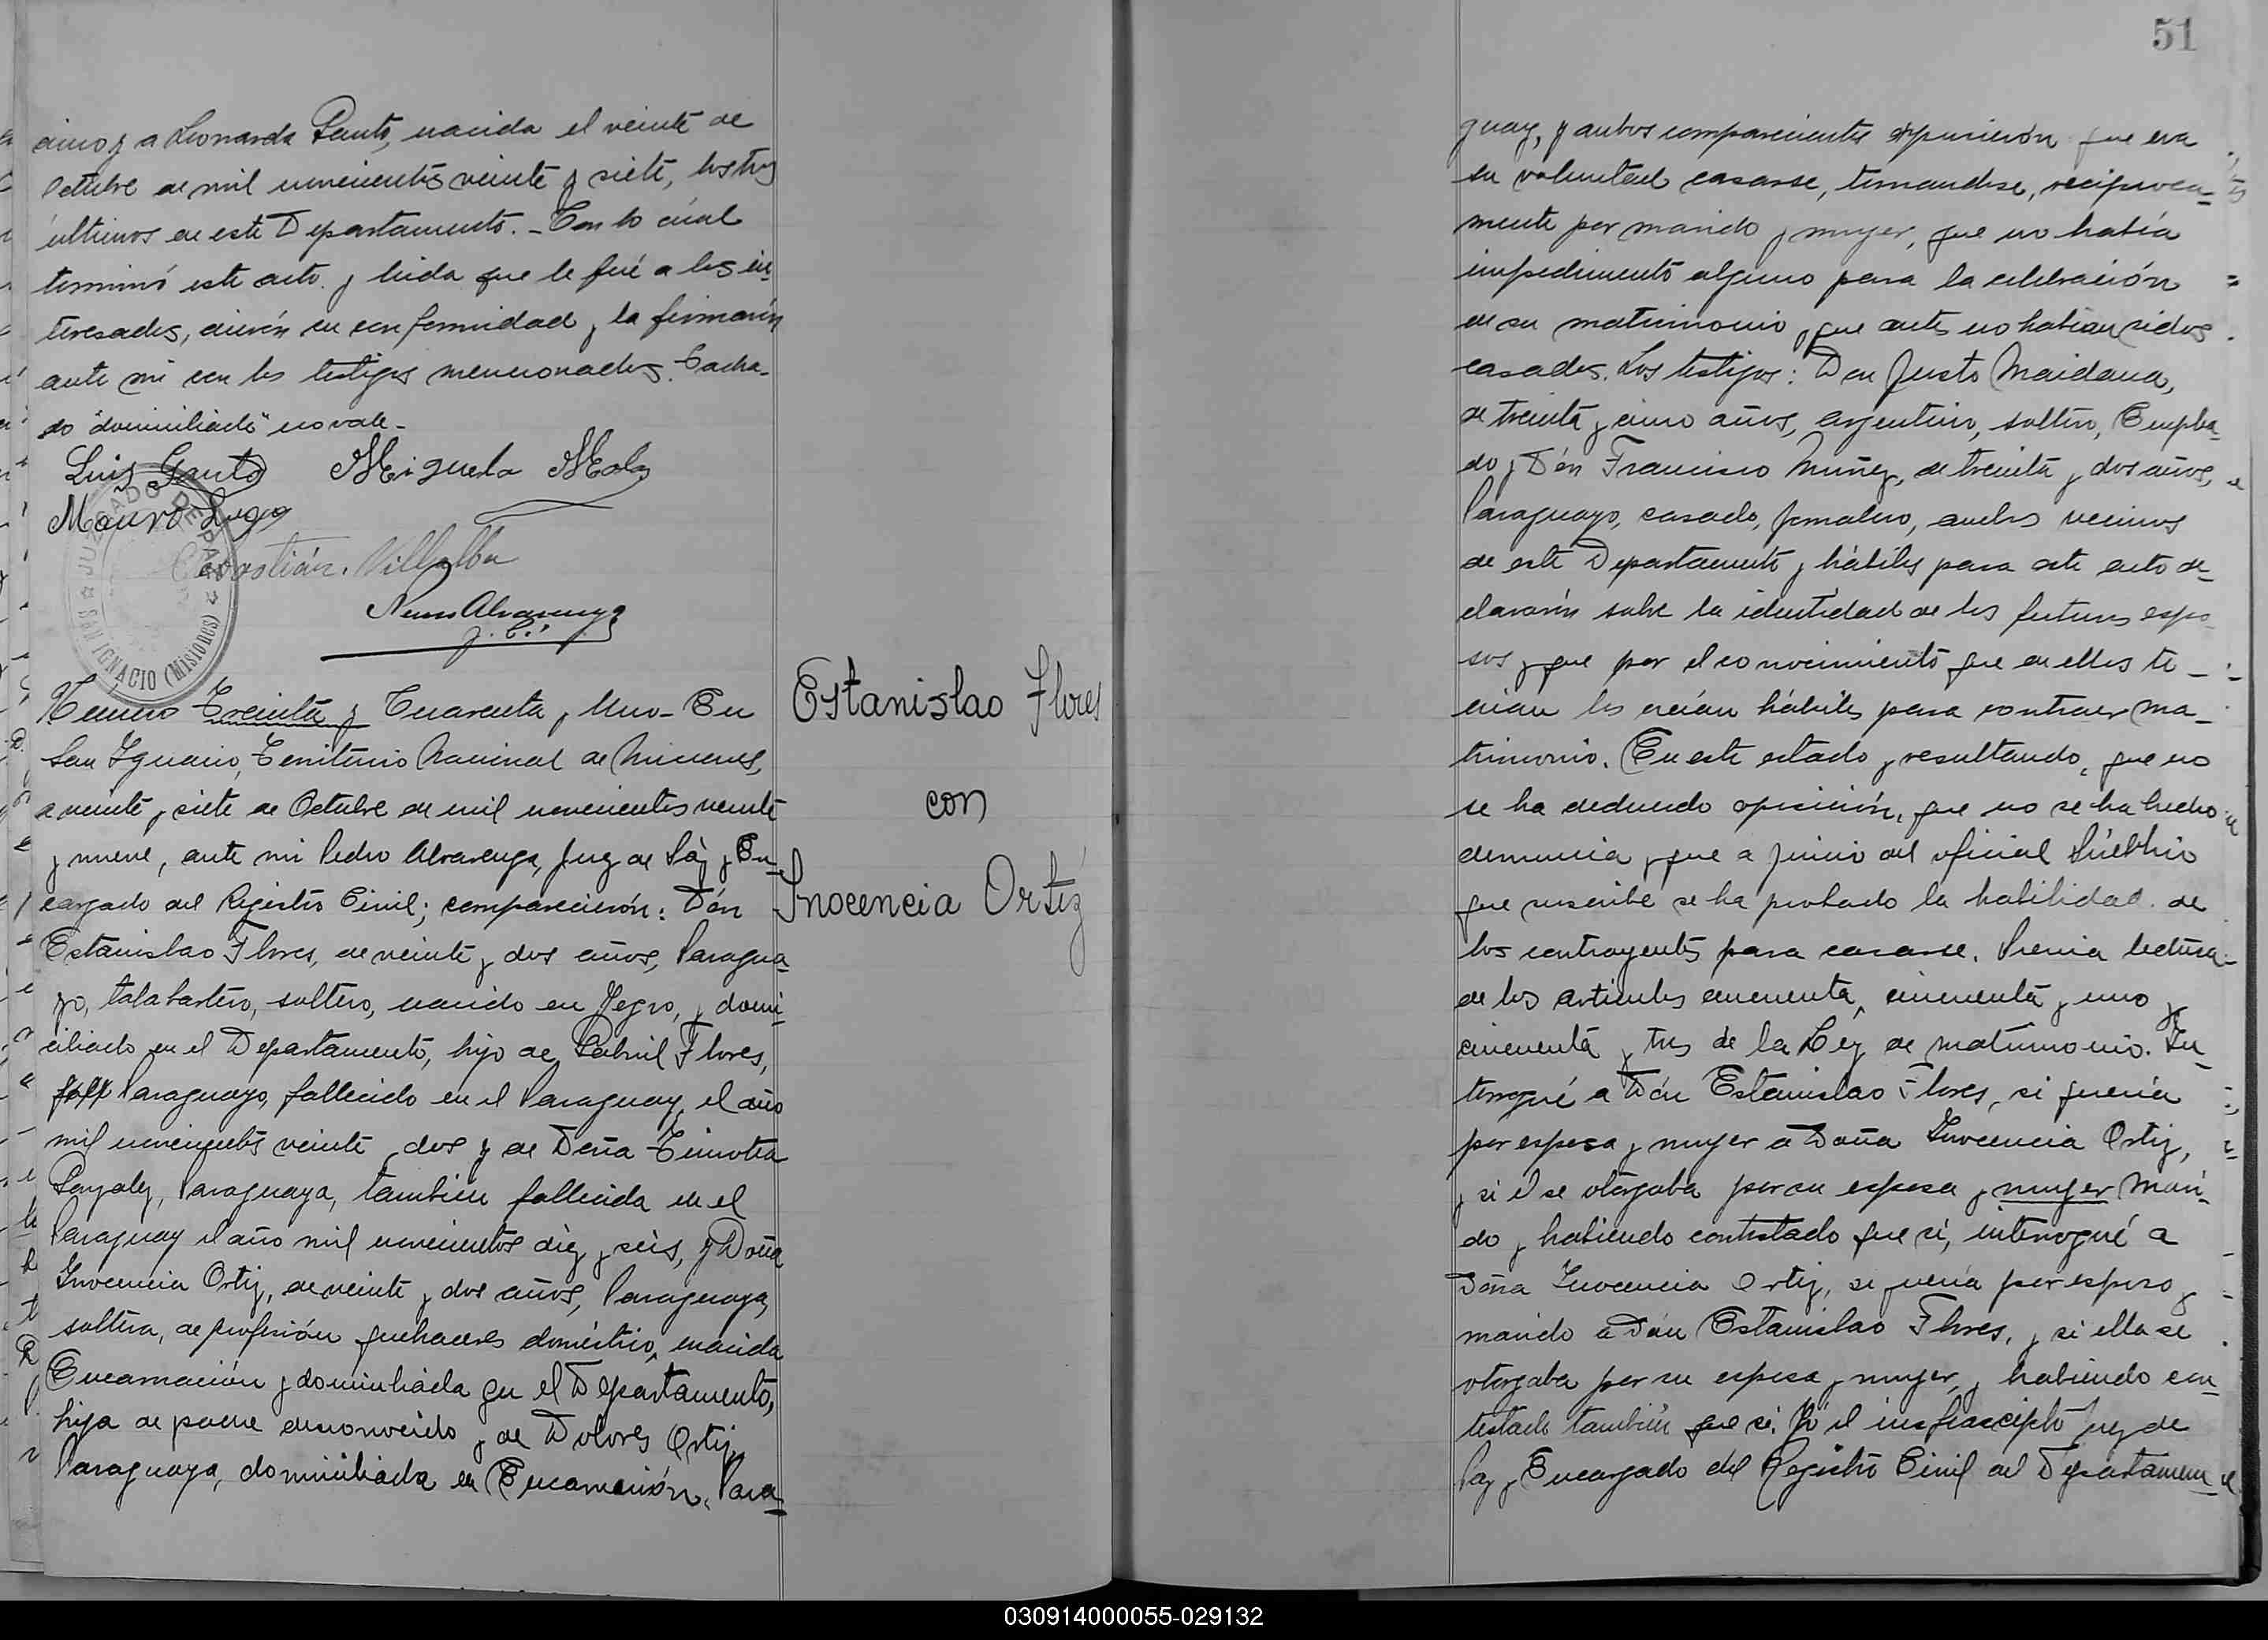 cinco y a Leonarda Gauto, nacida el veinte de
Octubre de mil novecientos veinte y siete, los tres
últimos en este Departamento. - Con lo cúal
terminó este acto. y leida que le fué a los in-
teresados, dierón su conformidad y la firmarón
ante mi con los testigos mencionados. Tacha-
do "domiciliado" no vale -
Luis Gauto Miguela Mola
Mauro Lugo
Sebastián Villalba
Alvarenga
JUZGADO DE PAZ
SAN IGNACIO (Misiones)
Número Treinta y Cuarenta y Uno - En
San Ignacio, Territorio Nacional de Misiones,
a veinte y siete de Octubre de mil novecientos veinte
y nueve, ante mi Pedro Alvarenga, Juez de Páz y En-
cargado del Registro Civil; comparecierón: Dón
Estanislao Flores, de veinte y dos años, Paragua-
yo, talabartero, soltero, nacido en Yegro, y domi-
ciliado en el Departamento, hijo de Gabriel Flores,
Paraguayo, fallecido en el Paraguay, el año
mil novecientos veinte y dos y de Doña Timotea
Gonzalez, Paraguaya, tambien fallecida en el
Paraguay el año mil novecientos diez y seis, y Doña
Inocencia Ortiz, de veinte y dos años, Paraguaya,
soltera, de profesión quehaceres doméstico, nacida
Encarnación y domiciliada en el Departamento,
hija de padre desconocido y de Dolores Ortiz,
Paraguaya, domiciliada en Encarnación, Para-
Estanislao Flores
con
Inocencia Ortiz
51
guay, y ambos comparecientes expusierón que era
su voluntad casarse, tomandose, reciproca-
mente por marido y mujer, que no había
impedimento alguno para la celebración
de su matrimonio y que antes no habian sidos
casados. Los testigos: Don Justo Maidana,
de treinta y cinco años, argentino, soltero, Emplea-
do y Dón Francisco Nuñez, de treinta y dos años,
Paraguayo, casado, jornalero, ambos vecinos
de este Departamento y hábiles para este acto de-
clararón sobre la identidad de los futuros espo-
sos y que por el conocimiento que de ellos te-
nian los creian hábiles para contraer ma-
trimonio. En este estado y resultando, que no
se ha deducido oposición, que no se ha hecho
denuncia y que a juicio del oficial Público
que suscribe se ha probado la habilidad de
los contrayentes para casarse. Previa lectura
de los articulos cincuenta, cincuenta y uno y
cincuenta y tres de la Ley de matrimonio. In-
terrogué a Dón Estanislao Flores, si quería
por esposa y mujer a Doña Inocencia Ortiz,
y si el se otorgaba por su esposa y mujer mari-
do y habiendo contestado que si, interrogué a
Doña Inocencia Ortiz, se quería por esposo y
marido a Dón Estanislao Flores, y si ella se
otorgaba por su esposa y mujer, y habiendo con-
testado también que si. Yo el infrascripto Juez de
Paz y Encargado del Registro Civil del Departamen-
030914000055-029132